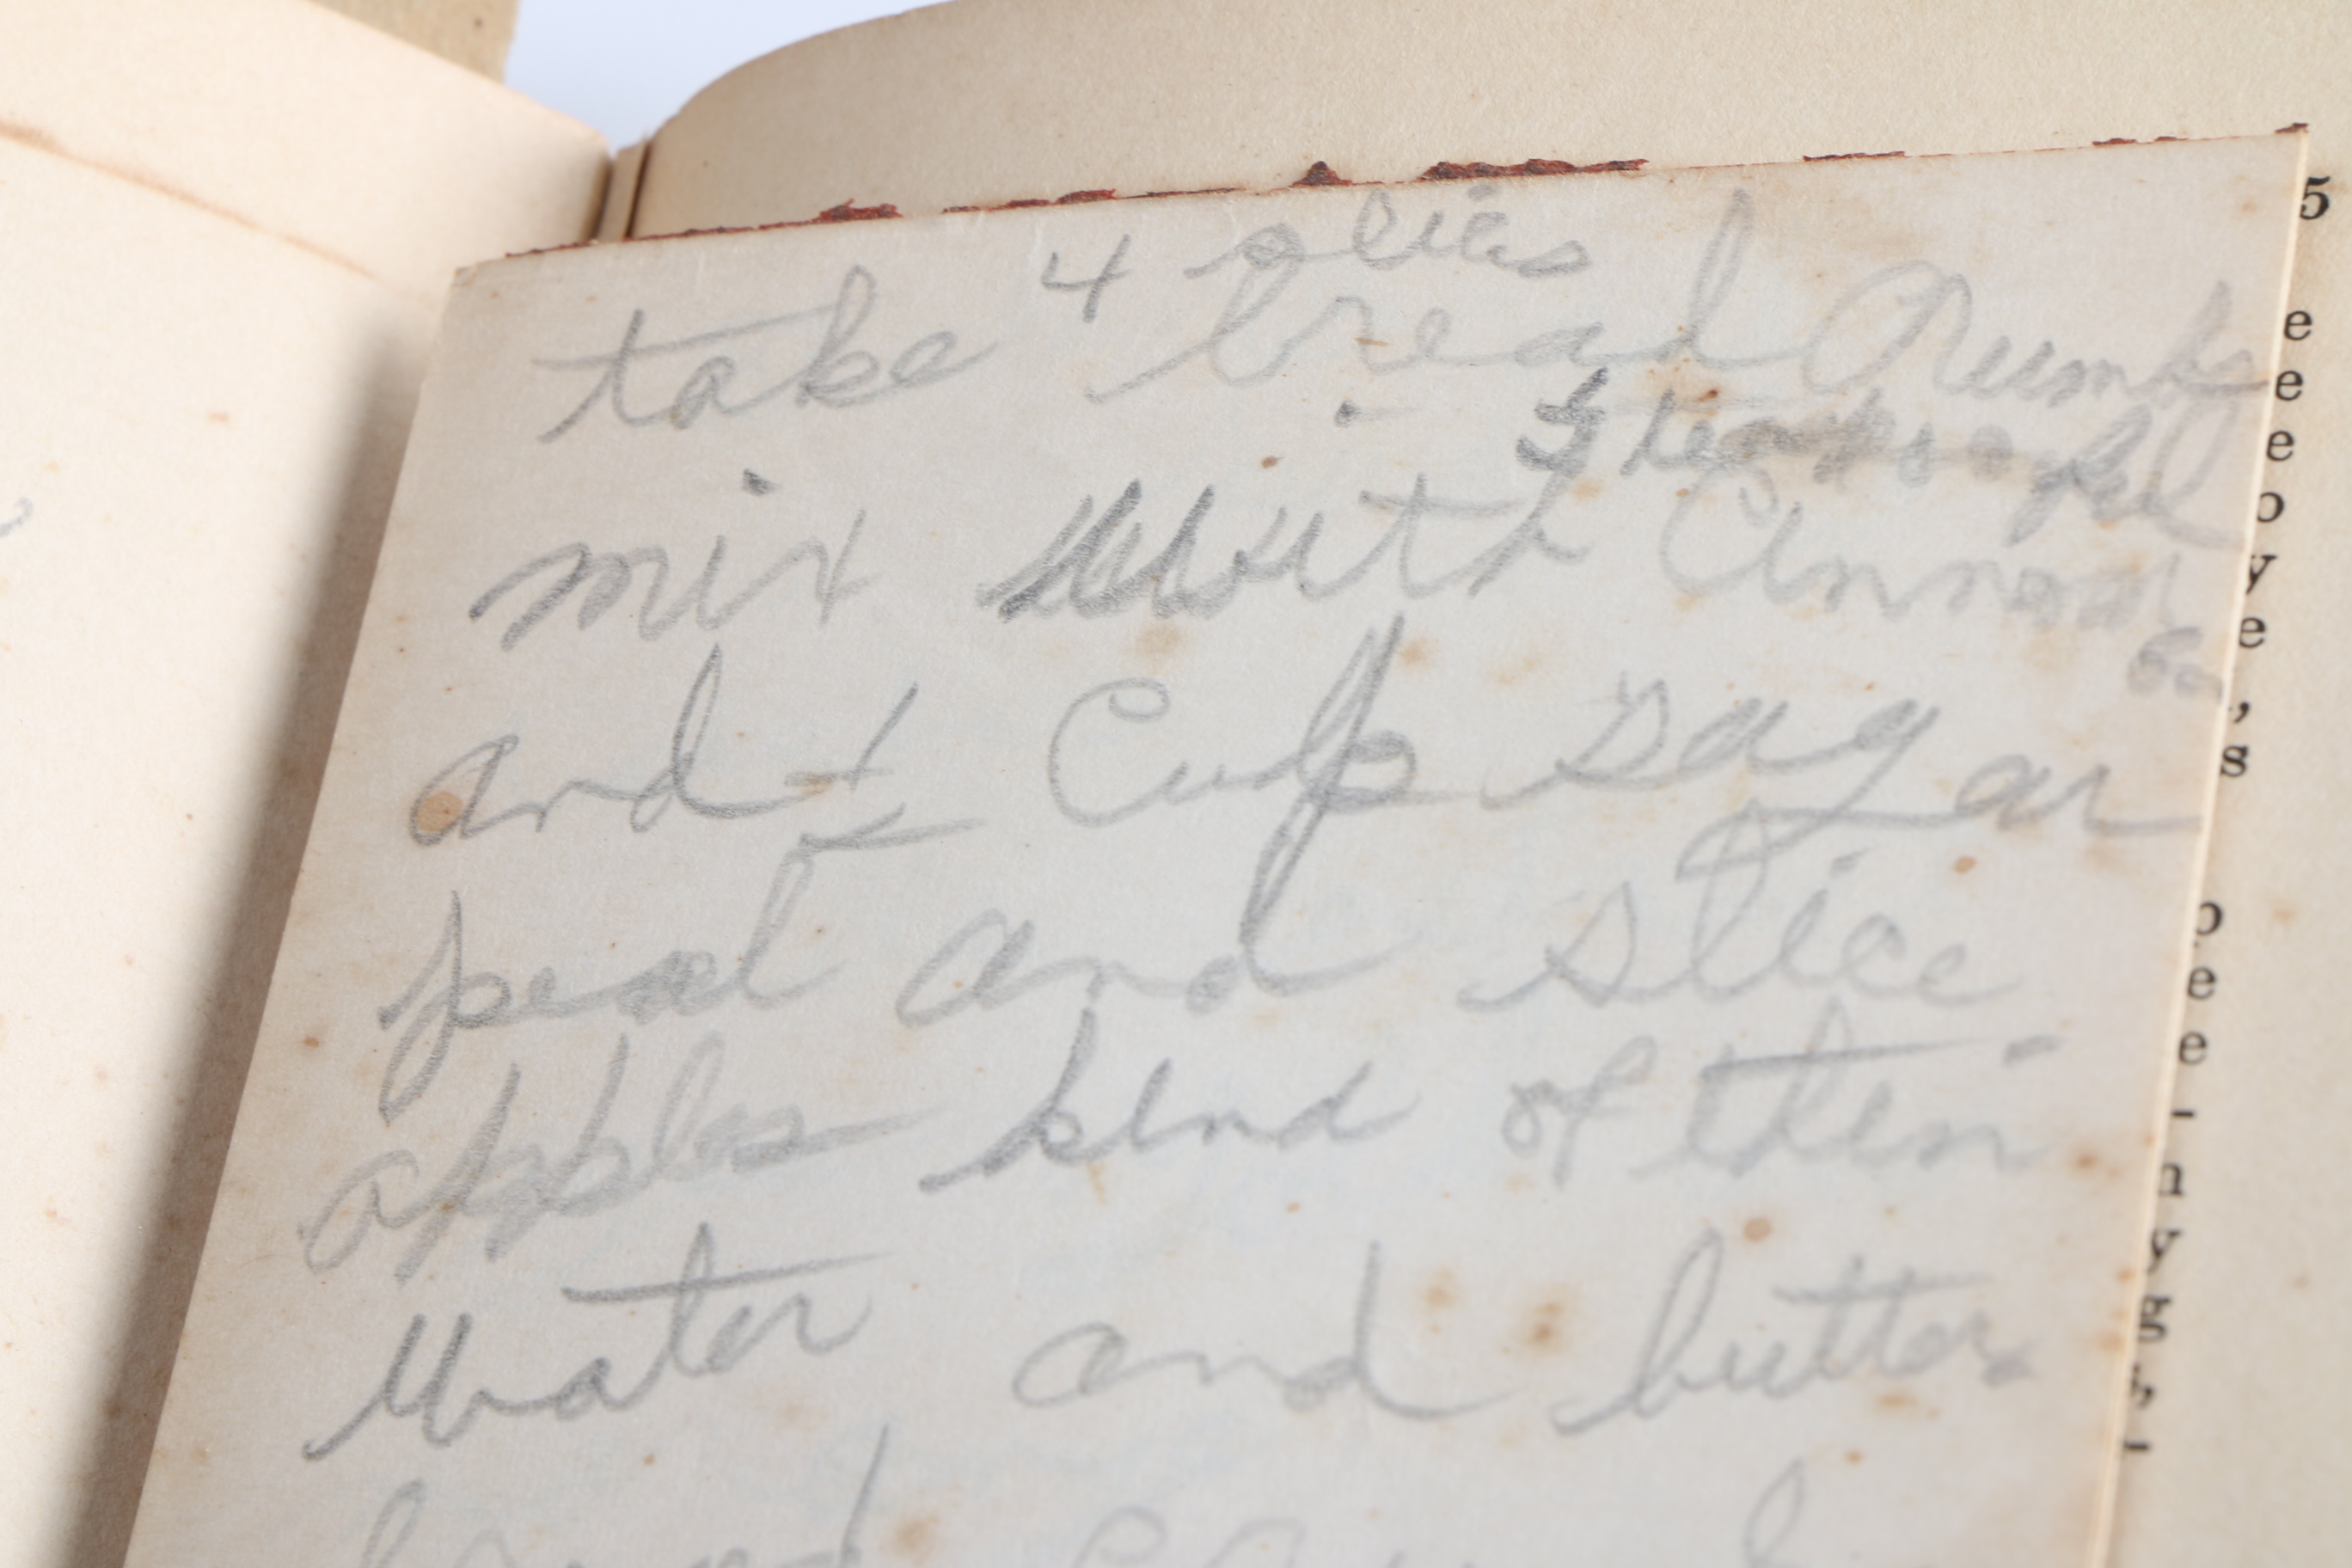 4 slices
take bread Crumbs
mix with Cinnamon
and ½ Cup sugar
peal and slice
apples kind of thin
Water and butter
5
e
e
e
o
y
e
,
s
o
e
e